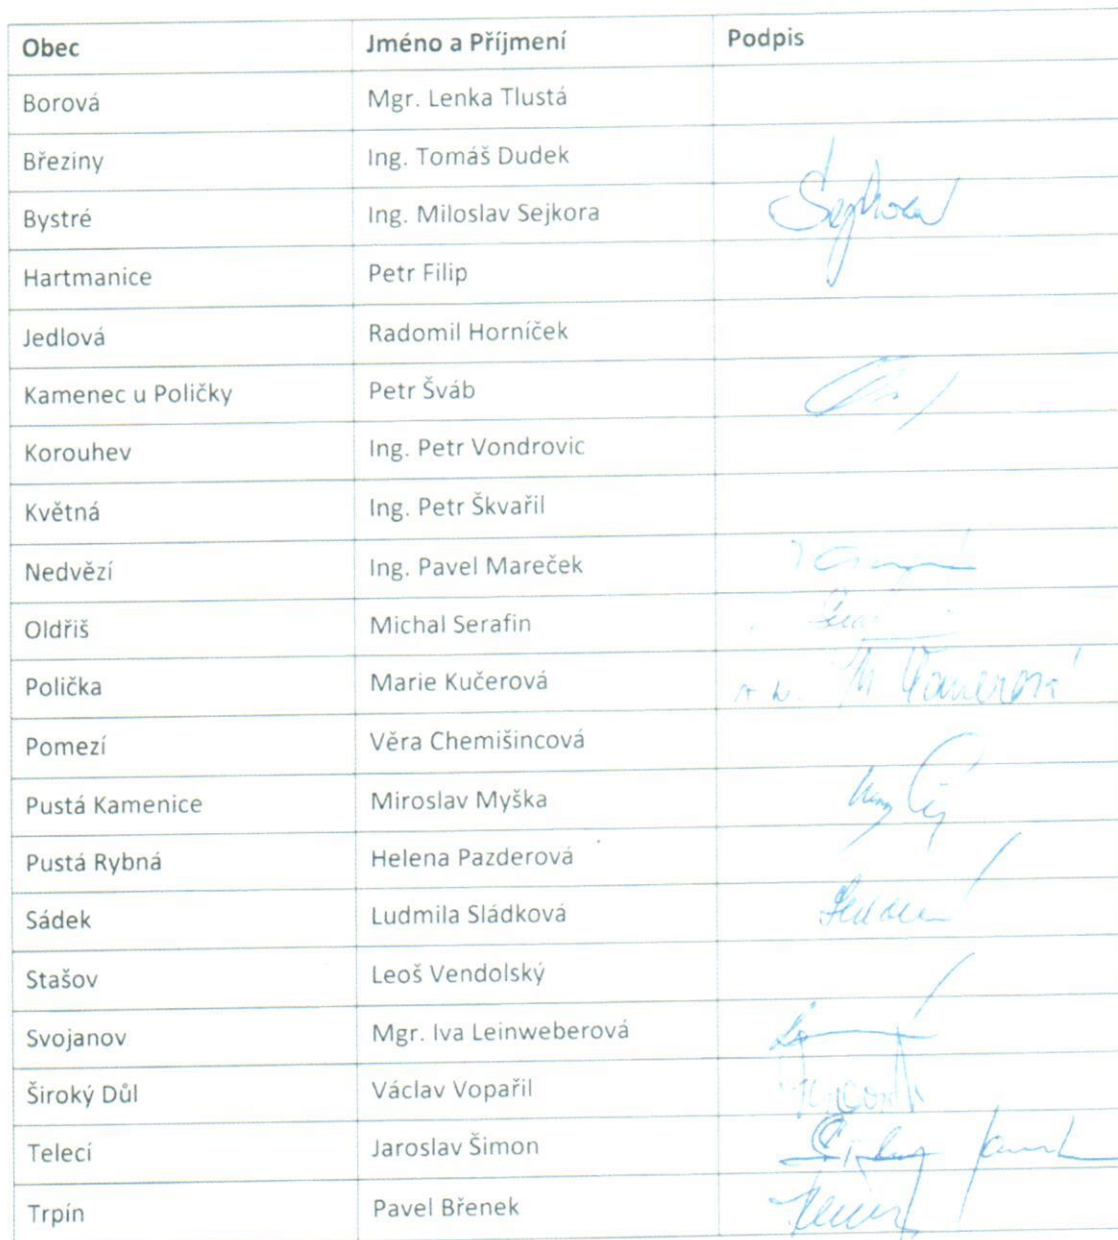 Obec Jméno a Příjmení Podpis
Borová Mgr. Lenka Tlustá
Březiny Ing. Tomáš Dudek
Bystré Ing. Miloslav Sejkora
Hartmanice Petr Filip
Jedlová Radomil Horníček
Kamenec u Poličky Petr Šváb
Korouhev Ing. Petr Vondrovic
Květná Ing. Petr Škvařil
Nedvězí Ing. Pavel Mareček
Oldřiš Michal Serafin
Polička Marie Kučerová
Pomezí Věra Chemišincová
Pustá Kamenice Miroslav Myška
Pustá Rybná Helena Pazderová
Sádek Ludmila Sládková
Stašov Leoš Vendolský
Svojanov Mgr. Iva Leinweberová
Široký Důl Václav Vopařil
Telecí Jaroslav Šimon
Trpín Pavel Břenek